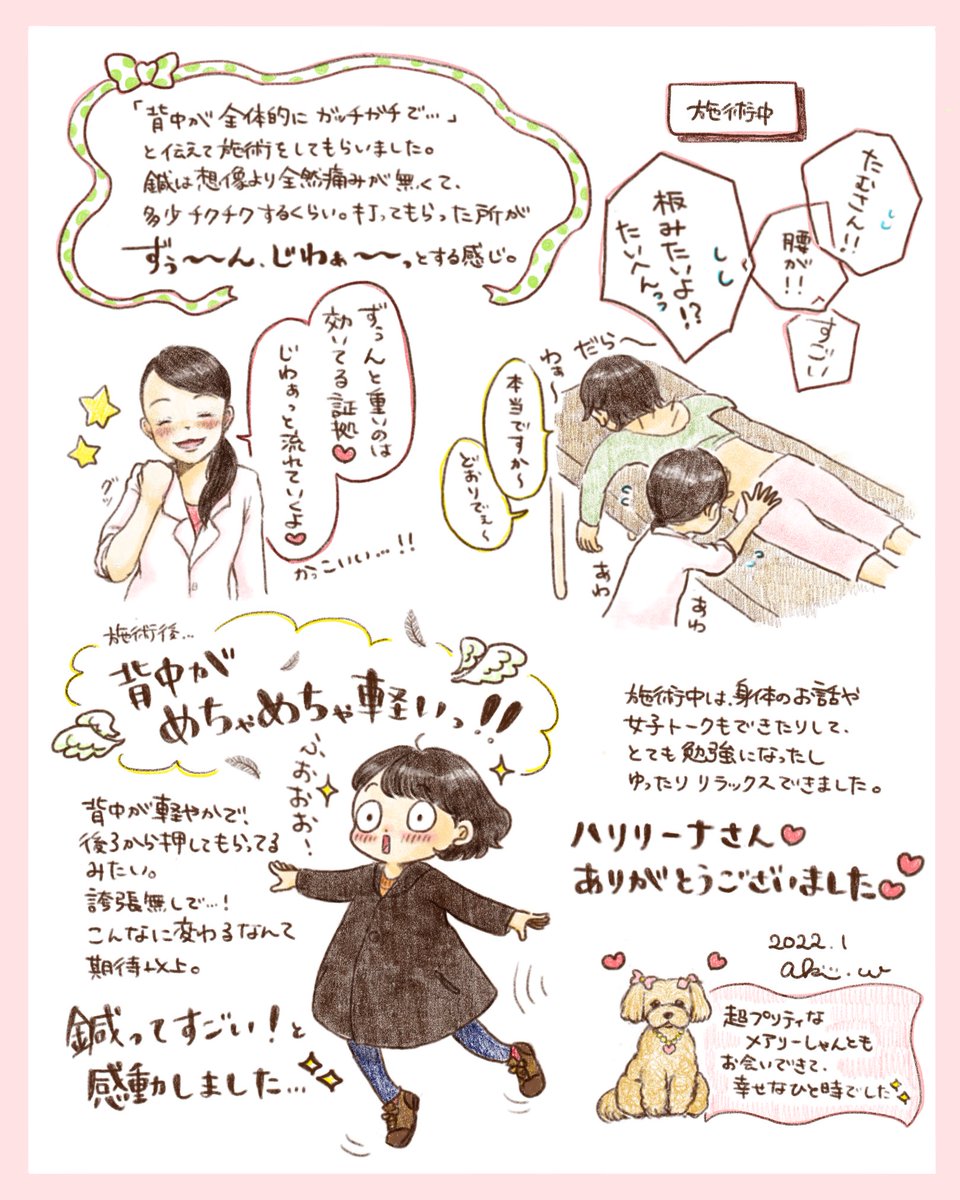 「背中が全体的にガッチガチで…」
と伝えて施術をしてもらいました。
鍼は想像より全然痛みが無くて、
多少チクチクするくらい。打ってもらった所が
ずぅ〜〜ん、じわぁ〜〜っとする感じ。
施術中
たむさん!!
腰が!!
すごい
板みたいよ!?
たいへんっっ
だら〜
わぁ〜
本当ですか〜
どおりでぇ〜
あわ
あわ
ずぅんと重いのは
効いてる証拠♥
じわぁっと流れていくよ♥
グッ
かっこいい…!!
施術後…
背中が
めちゃめちゃ軽いっ!!
ひょおおお!
背中が軽やかで、
後ろから押してもらってる
みたい。
誇張無しで…!
こんなに変わるなんて
期待以上。
鍼ってすごい!と
感動しました…
施術中は、身体のお話や
女子トークもできたりして、
とても勉強になったし
ゆったりリラックスできました。
ハリリーナさん♥
ありがとうございました♥♥
2022.1
aki.w
超プリティな
メアリーしゃんとも
お会いできて、
幸せなひと時でした